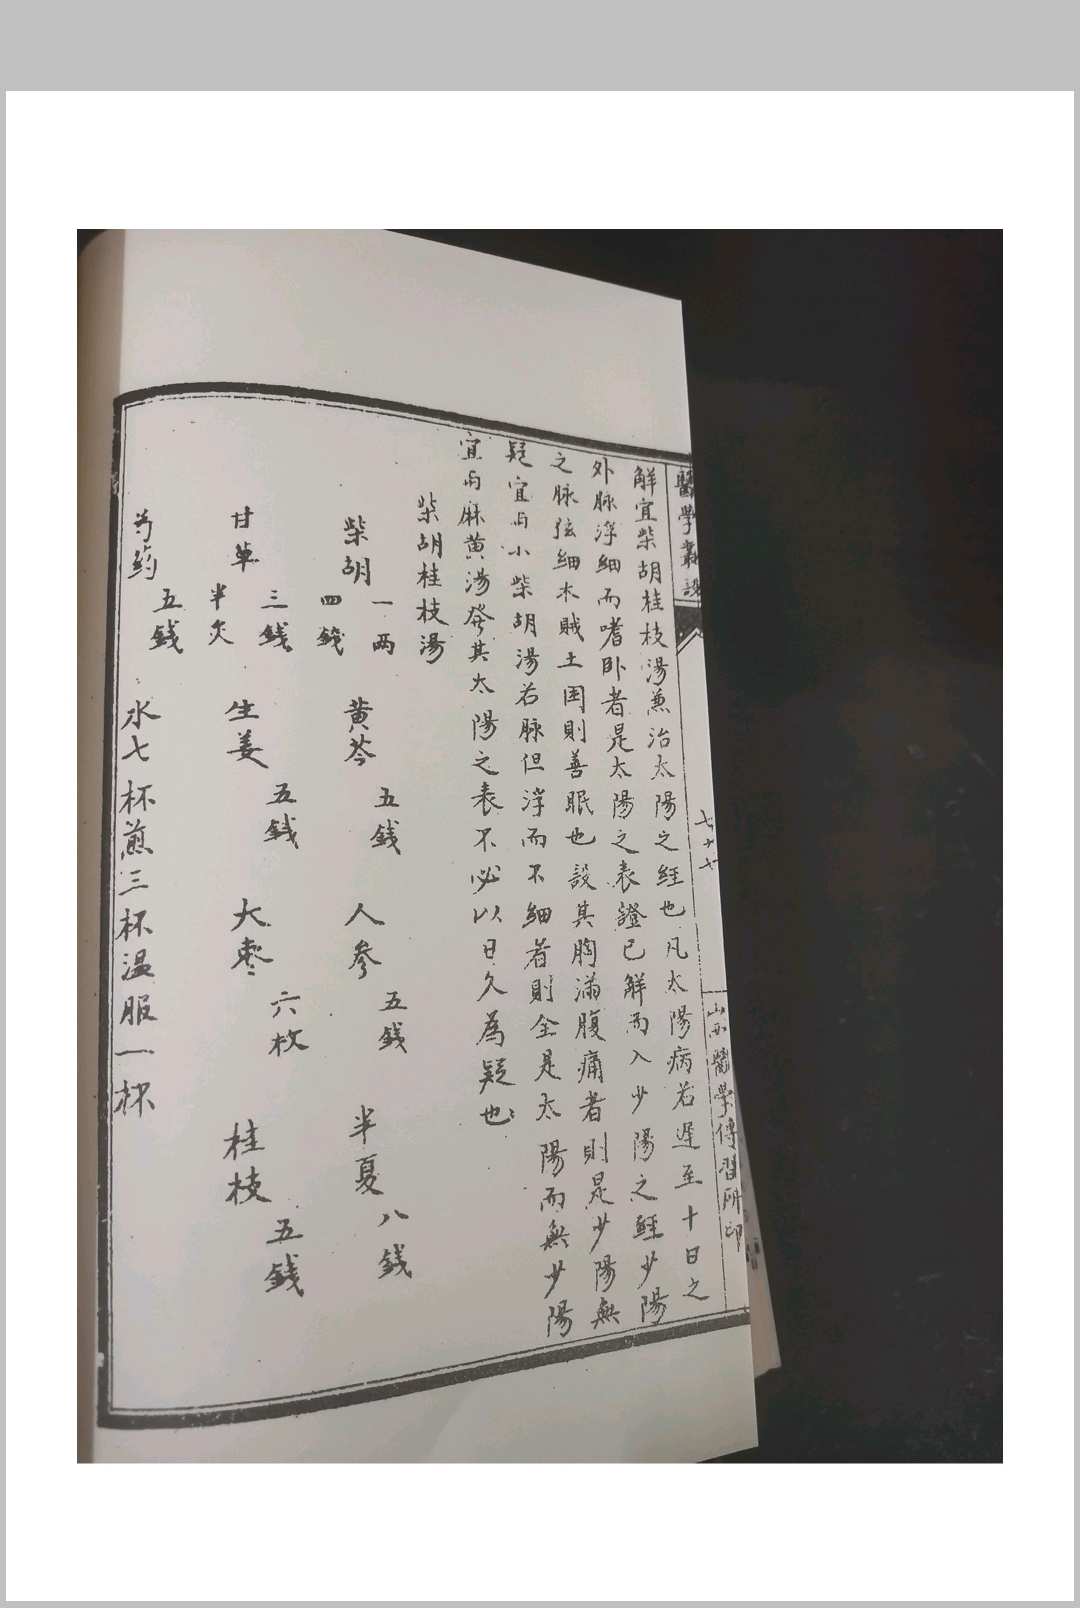 醫學叢設
七十七
山西醫學傳習所印
解宜柴胡桂枝湯兼治太陽之經也凡太陽病若遲至十日之
外脉浮細而嗜卧者是太陽之表證已解而入少陽之經少陽
之脉弦細木賊土困則善眠也設其胸滿腹痛者則是少陽無
疑宜与小柴胡湯若脉但浮而不細者則全是太陽而無少陽
宜与麻黄湯發其太陽之表不必以日久為疑也
柴胡桂枝湯
柴胡 一两四錢 黄芩 五錢 人參 五錢 半夏 八錢
甘草 三錢半灸 生姜 五錢 大棗 六枚 桂枝 五錢
芍药 五錢 水七杯煎三杯温服一杯